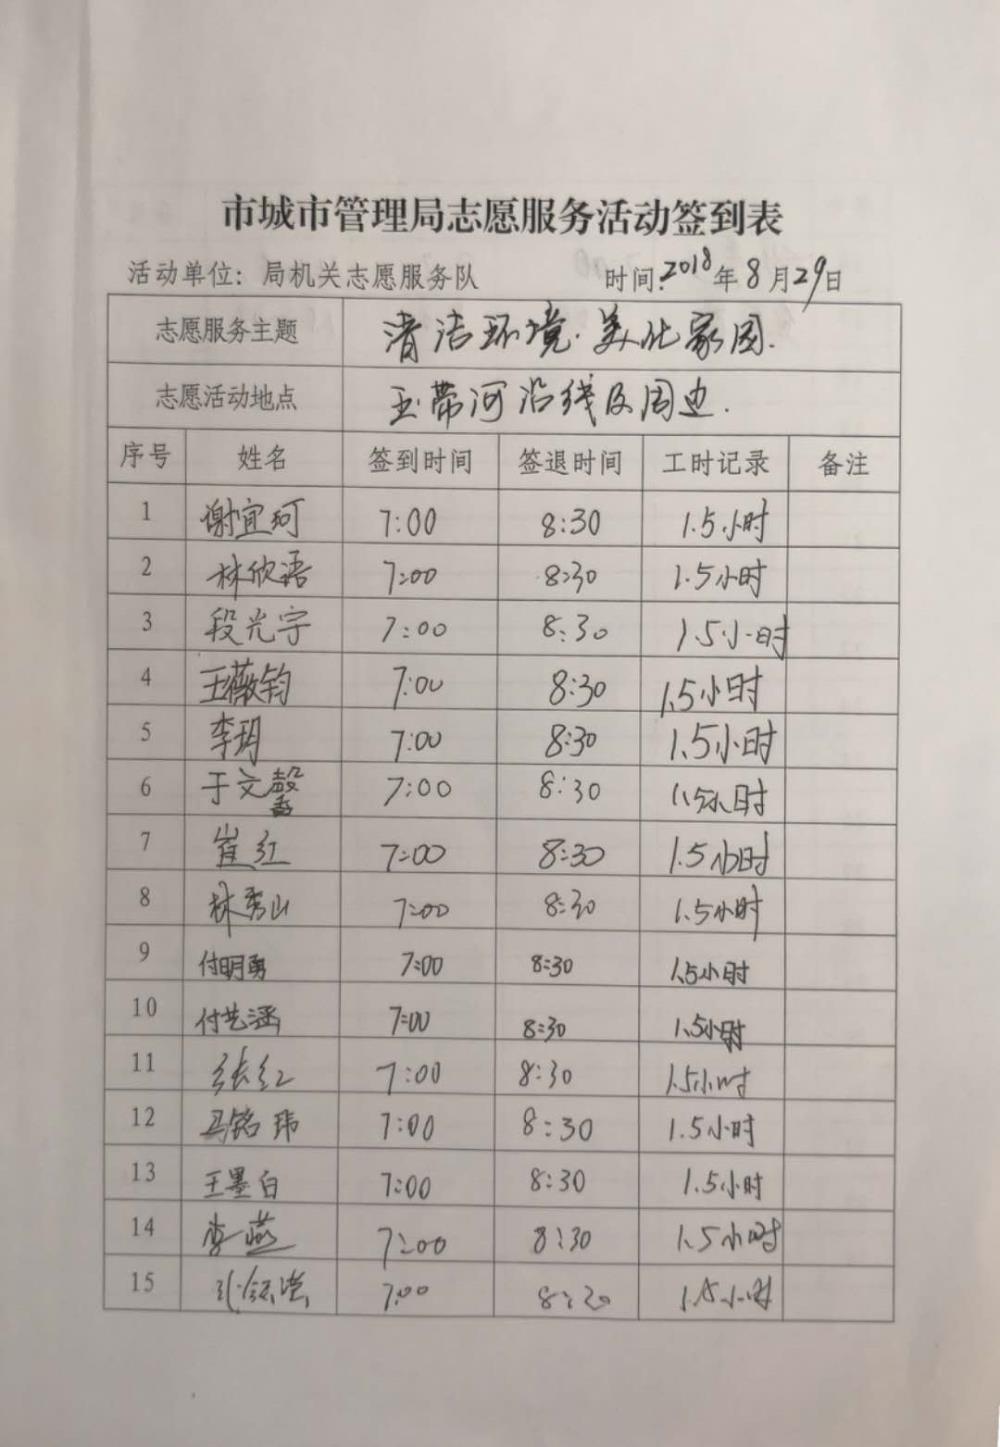 市城市管理局志愿服务活动签到表
活动单位：局机关志愿服务队 时间:2018年8月29日
志愿服务主题 清洁环境.美化家园.
志愿活动地点 玉带河沿线及周边.
序号 姓名 签到时间 签退时间 工时记录 备注
1 谢宜珂 7:00 8:30 1.5小时
2 林欣语 7:00 8:30 1.5小时
3 段光宇 7:00 8:30 1.5小时
4 王薇钧 7:00 8:30 1.5小时
5 李玥 7:00 8:30 1.5小时
6 于文馨 7:00 8:30 1.5小时
7 崔红 7:00 8:30 1.5小时
8 林秀山 7:00 8:30 1.5小时
9 付明勇 7:00 8:30 1.5小时
10 付艺涵 7:00 8:30 1.5小时
11 张红 7:00 8:30 1.5小时
12 马铭玮 7:00 8:30 1.5小时
13 王墨白 7:00 8:30 1.5小时
14 李燕 7:00 8:30 1.5小时
15 7:00 1.5小时